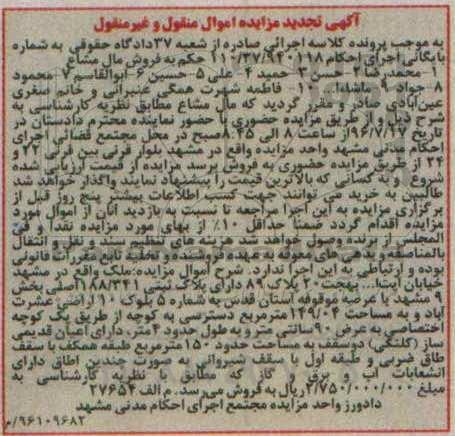 آگهی تجدید مزایده اموال منقول و غیرمنقول
به موجب پرونده کلاسه اجرائی صادره از شعبه ۳۷ دادگاه حقوقی به شماره
بایگانی اجرای احکام ۱۱۰/۳۷/۹۴۰۱۱۸ حکم به فروش مال مشاع
۱-محمدرضا ۲-حسن ۳-حمید ۴-علی ۵-حسین ۶-ابوالقاسم ۷-محمود
۸-جواد ۹-ماشاءا... ۱۰-فاطمه شهرت همگی عنبرانی و خانم صغری
عین‌آبادی صادر و مقرر گردید که مال مشاع مطابق نظریه کارشناسی به
شرح ذیل و از طریق مزایده حضوری با حضور نماینده محترم دادستان در
تاریخ ۹۶/۷/۱۷ از ساعت ۸ الی ۸.۴۵ صبح در محل مجتمع قضائی اجرای
احکام مدنی مشهد واحد مزایده واقع در مشهد بلوار قرنی بین قرنی ۲۲ و
۲۴ از طریق مزایده حضوری به فروش برسد مزایده از قیمت ارزیابی شده
شروع و به کسانی که بالاترین قیمت را پیشنهاد نمایند واگذار خواهد شد
طالبین به خرید می توانند جهت کسب اطلاعات بیشتر پنج روز قبل از
برگزاری مزایده به این اجرا مراجعه تا نسبت به بازدید آنان از اموال مورد
مزایده اقدام گردد ضمنا حداقل ۱۰٪ از بهای مورد مزایده نقد و فی
المجلس از برنده وصول خواهد شد هزینه های تنظیم سند و نقل و انتقال
بالمناصفه و بدهی های معوقه به عهده فروشنده و تخلیه تابع مقررات قانونی
بوده و ارتباطی به این اجرا ندارد. شرح اموال مزایده: ملک واقع در مشهد
خیابان آیت‌ا... بهجت ۲۰ پلاک ۸۹ دارای پلاک ثبتی ۱۸۸/۳۴۱ اصلی بخش
۹ مشهد با عرصه موقوفه آستان قدس به شماره ۵ بلوک ۱۰ اراضی عشرت
آباد و به مساحت ۱۴۹/۰۴ مترمربع دسترسی به کوچه از طریق یک کوچه
اختصاصی به عرض ۹۰ سانتی متر و به طول حدود ۴ متر، دارای اعیان قدیمی
ساز (کلنگی) دوسقف به مساحت حدود ۱۵۰ مترمربع طبقه همکف با سقف
طاق ضربی و طبقه اول با سقف شیروانی به صورت چندین اطاق دارای
انشعابات آب و برق و گاز که مطابق با نظریه کارشناسی به
مبلغ ۲/۷۵۰/۰۰۰/۰۰۰ ریال به فروش می رسد. م الف ۲۷۶۵۴
دادورز واحد مزایده مجتمع اجرای احکام مدنی مشهد
۹۶۱۰۹۶۸۲/م